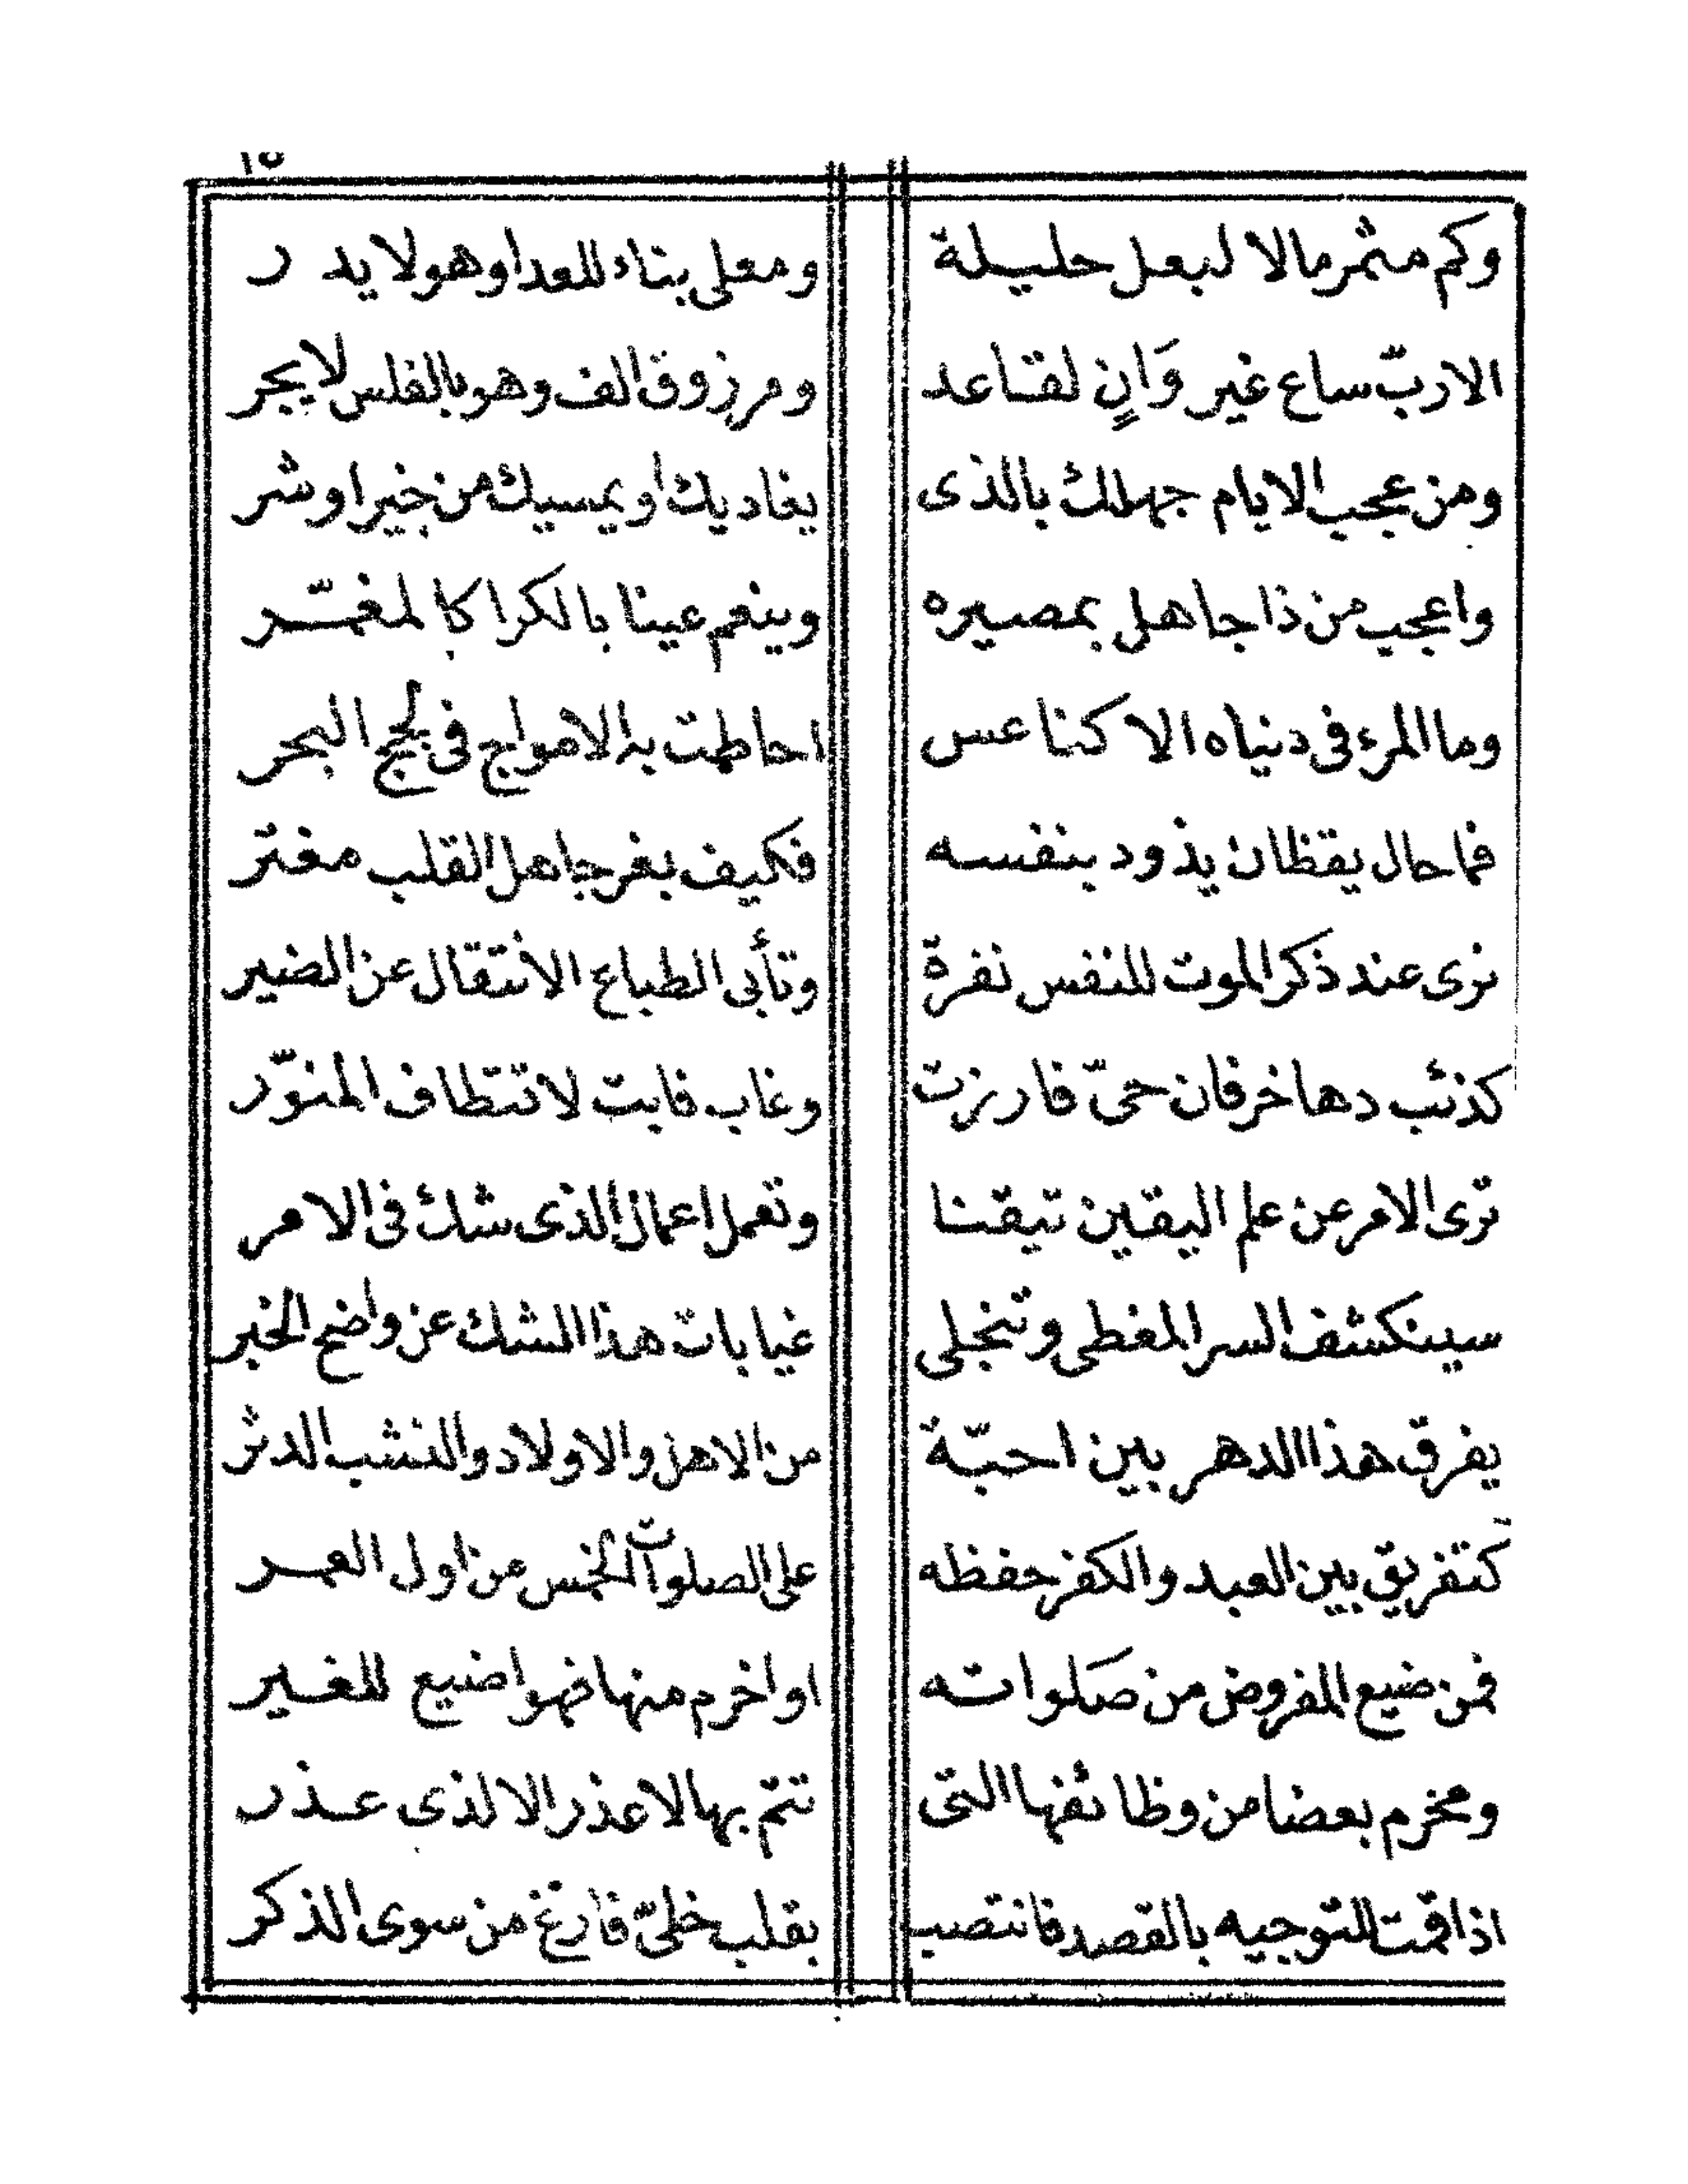 ١٥
وكم مثمر مالا لبعل حليلة ومعلى بناء للعدا وهو لا يدر
الا ربّ ساع غير وَانٍ لقاعد ومرزوق الف وهو بالفلس لا يجر
ومن عجب الايام جهلك بالذى يغاديك او يمسيك من خير او شر
واعجب من ذا جاهل بمصيره وينعم عينا بالكرا كالمغمّر
وما المرء فى دنياه الا كناعس احاطت به الامواج فى لجج البحر
فما حال يقظان يذود بنفسه فكيف بغر جاهل القلب مغتر
نرى عند ذكر الموت للنفس نفرة وتأبى الطباع الانتقال عن الضير
كذئب دها خرفان حىّ فارزت وغاب فابت لاتتطاف المنوّر
ترى الامر عن علم اليقين تيقنا وتعمل اعمال الذى شك فى الامر
سينكشف السر المغطى وتنجلى غيابات هذا الشك عن واضح الخبر
يفرق هذا الدهر بين احبّة من الاهل والاولاد والنشب الدثر
كتفريق بين العبد والكفر حفظه على الصلوات الخمس من اول العمر
فمن ضيع المفروض من صَلواته او اخرم منها فهو اضيع للغير
ومخرم بعضا من وظائفها التى تتم بها لا عذر الا لذى عذر
اذا قمت للتوجيه بالقصد فانتصب بقلب خلىّ فارغ من سوى الذكر